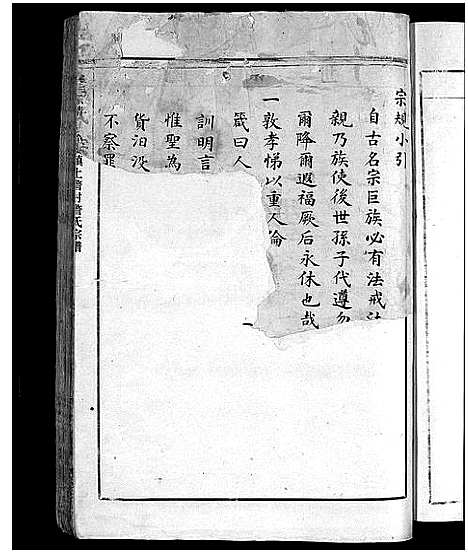 宗規小引
自古名宗巨族必有法戒法
親乃族使後世孫子代遵勿
爾降爾遐福厥后永休也哉
一敦孝悌以重人倫
箴曰人
訓明言
惟聖為
貨泊没
不察罪
村詹氏宗譜